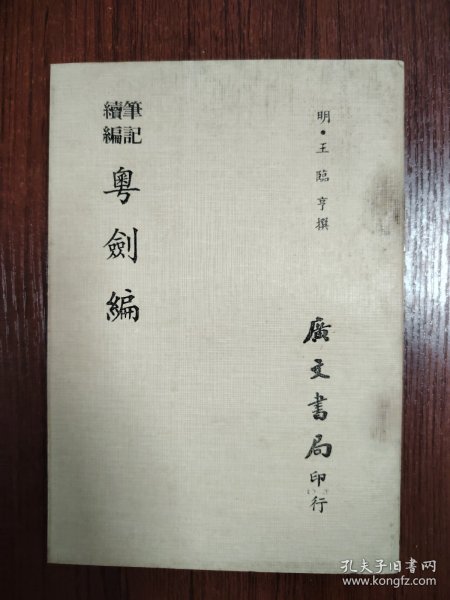 明•王臨亨撰
筆記
續編
粵劍編
廣文書局印行
孔夫子旧书网
www.kongfz.com